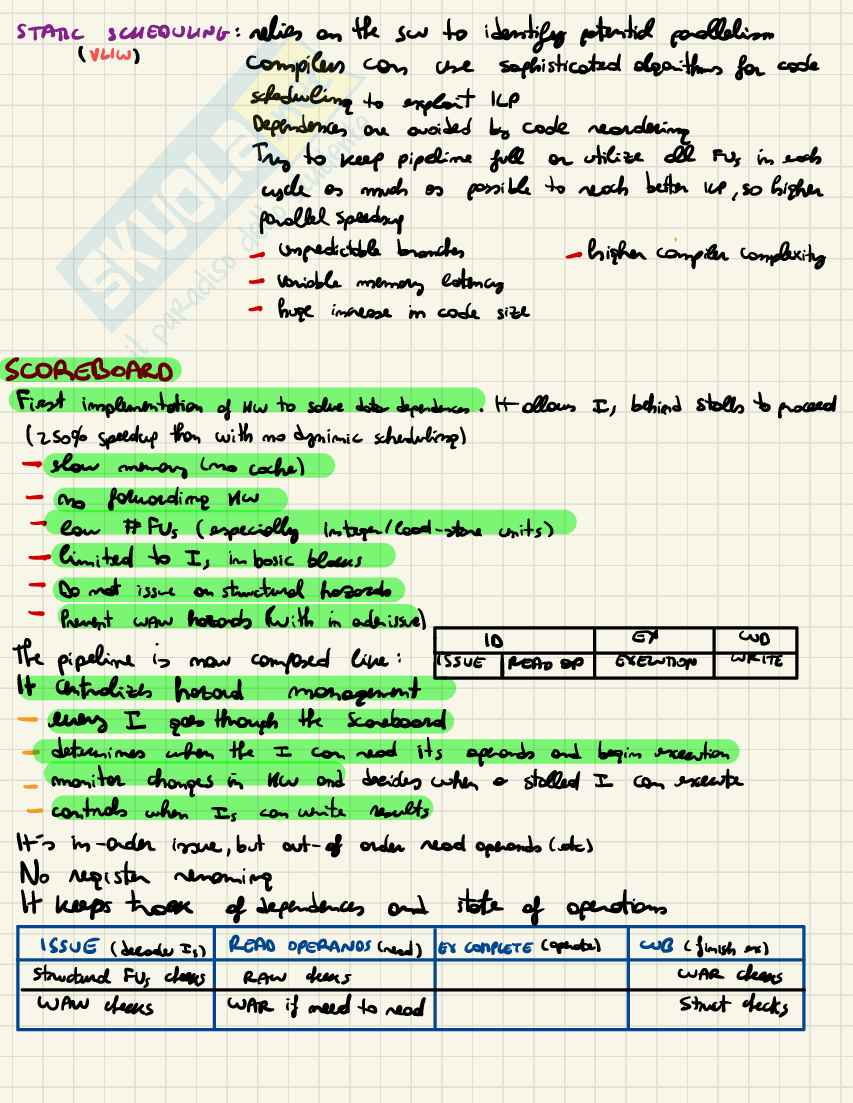 STATIC SCHEDULING: relies on the SW to identify potential parallelism
(VLIW)
Compilers can use sophisticated algorithms for code
scheduling to exploit ILP
Dependences are avoided by code reordering
Try to keep pipeline full or utilize all FUs in each
cycle as much as possible to reach better ILP, so higher
parallel speedup
- unpredictable branches - higher compiler complexity
- variable memory latency
- huge increase in code size
SKUOLA.net
il paradiso dello studente
SCOREBOARD
First implementation of HW to solve data dependences. It allows Is behind stalls to proceed
(250% speedup than with no dynimic scheduling)
- slow memory (no cache)
- no forwarding HW
- low # FUs (especially integer/load-store units)
- limited to Is in basic blocks
- Do not issue on structural hazards
- Prevent WAW hazards (with in order issue)
ID EX WB
ISSUE READ OP EXECUTION WRITE
The pipeline is now composed like:
It centralizes hazard management
- every I goes through the scoreboard
- determines when the I can read its operands and begin execution
- monitor changes in HW and decides when a stalled I can execute
- controls when Is can write results
It's in-order issue, but out-of order read operands
No register renaming
It keeps track of dependences and state of operations
ISSUE (decode Is) READ OPERANDS (read) EX COMPLETE (operate) WB (finish ex)
Structural FUs checks RAW checks WAR checks
WAW checks WAR if need to read Struct checks